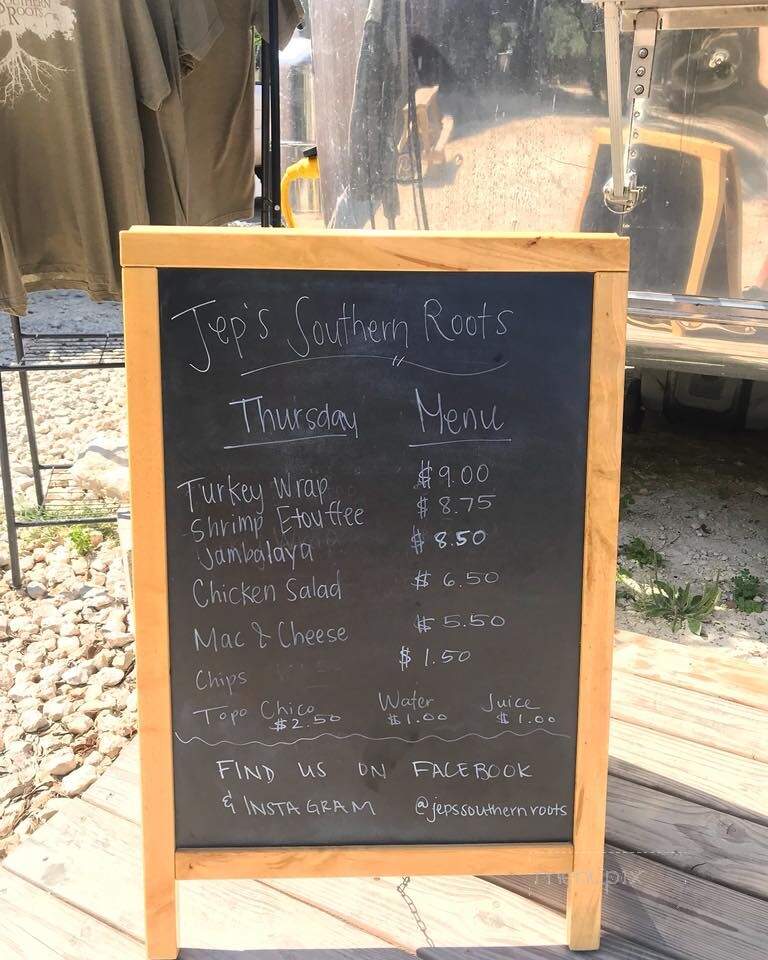 SOUTHERN
ROOTS
Jep's Southern Roots
Thursday Menu
Turkey Wrap $9.00
Shrimp Etouffee $8.75
Jambalaya $8.50
Chicken Salad $6.50
Mac & Cheese $5.50
Chips $1.50
Topo Chico Water Juice
$2.50 $1.00 $1.00
FIND US ON FACEBOOK
& INSTAGRAM @jepssouthernroots
menupix